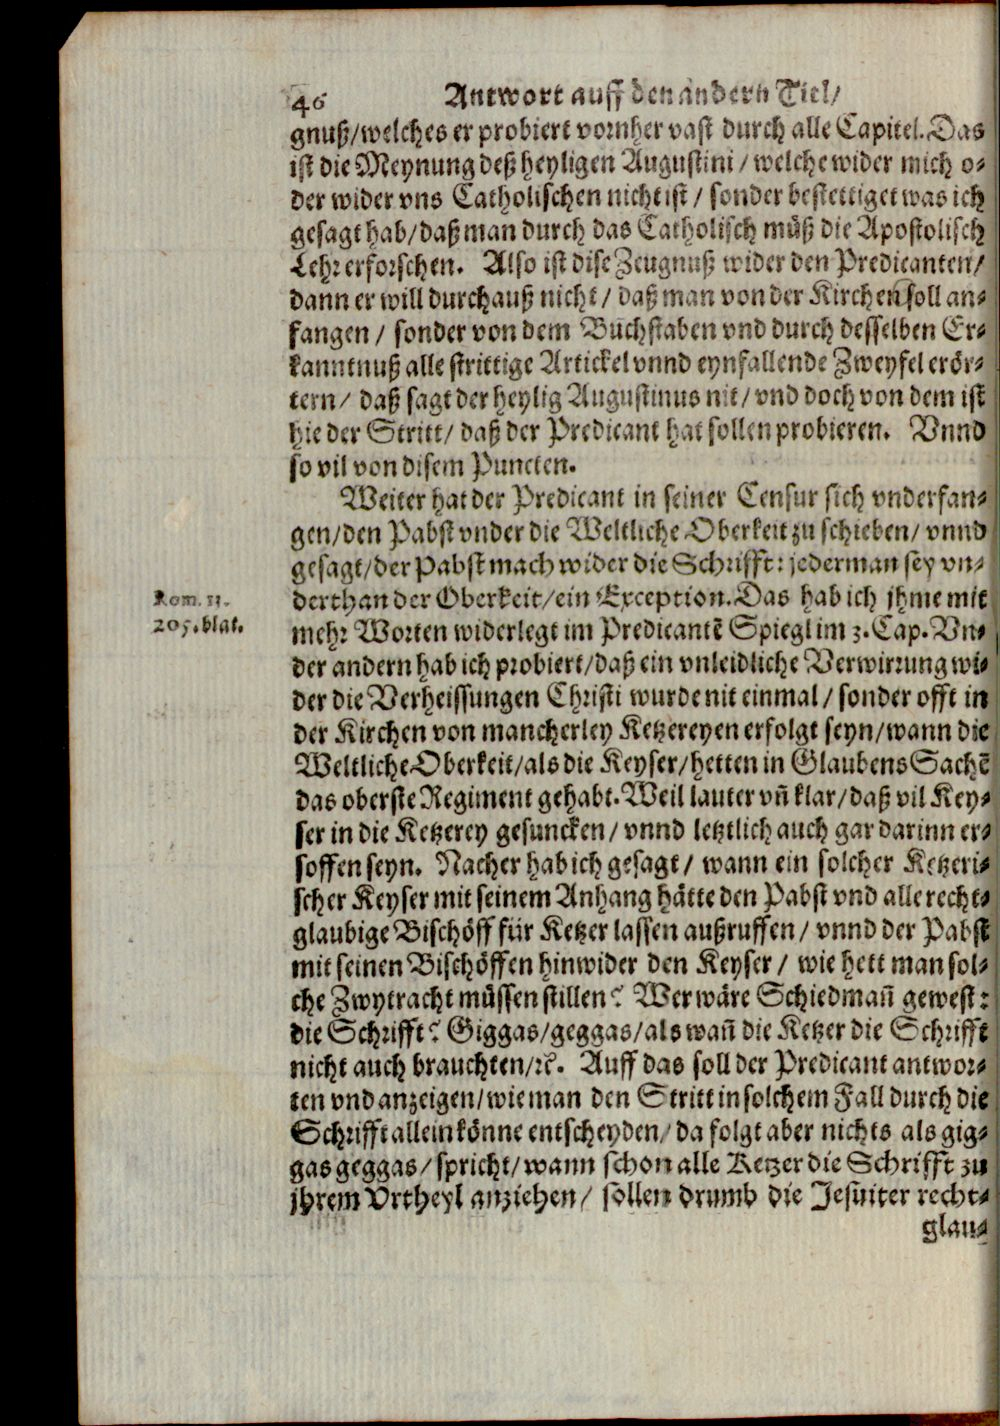 46 Antwort auff den andern Titl/
gnuß/welches er probiert vornher vast durch alle Capitel. Das
ist die Meynung deß heyligen Augustini / welche wider mich o-
der wider vns Catholischen nicht ist / sonder bestettiget was ich
gesagt hab/daß man durch das Catholisch müß die Apostolisch
Lehr erforschen. Also ist dise Zeugnuß wider den Predicanten/
dann er will durchauß nicht / daß man von der Kirchen soll an-
fangen / sonder von dem Büchstaben vnd durch desselben Er-
kanntnuß alle strittige Artickel vnnd eynfallende Zweyfel erör-
tern / daß sagt der heylig Augustinus nit / vnd doch von dem ist
hie der Stritt/ daß der Predicant hat sollen probieren. Vnnd
so vil von disem Puncten.
Weiter hat der Predicant in seiner Censur sich vnderfan-
gen/den Pabst vnder die Weltliche Oberkeit zu schieben/ vnnd
gesagt/der Pabst mach wider die Schrifft: jederman sey vn-
derthan der Oberkeit/ein Exception. Das hab ich jhme mit
Rom. 13.
205. blat.
mehr Worten widerlegt im Predicantē Spiegl im 3. Cap. Vn-
der andern hab ich probiert/daß ein vnleidliche Verwirrung wi-
der die Verheissungen Christi wurde nit einmal / sonder offt in
der Kirchen von mancherley Ketzereyen erfolgt seyn/wann die
Weltliche Oberkeit/als die Keyser/hetten in Glaubens Sachē
das oberste Regiment gehabt. Weil lauter vñ klar/daß vil Key-
ser in die Ketzerey gesuncken / vnnd letztlich auch gar darinn er-
soffen seyn. Nacher hab ich gesagt / wann ein solcher Ketzeri-
scher Keyser mit seinem Anhang hätte den Pabst vnd alle recht-
glaubige Bischöff für Ketzer lassen außruffen / vnnd der Pabst
mit seinen Bischöffen hinwider den Keyser / wie hett man sol-
che Zwytracht müssen stillen? Wer wäre Schiedmañ gewest:
die Schrifft? Giggas/geggas/als wañ die Ketzer die Schrifft
nicht auch brauchten/ꝛc. Auff das soll der Predicant antwor-
ten vnd anzeigen/wie man den Stritt in solchem Fall durch die
Schrifft allein könne entscheyden/ da folgt aber nichts als gig-
gas geggas / spricht/wann schon alle Ketzer die Schrifft zu
jhrem Vrtheyl anziehen / sollen drumb die Jesuiter recht-
glau-